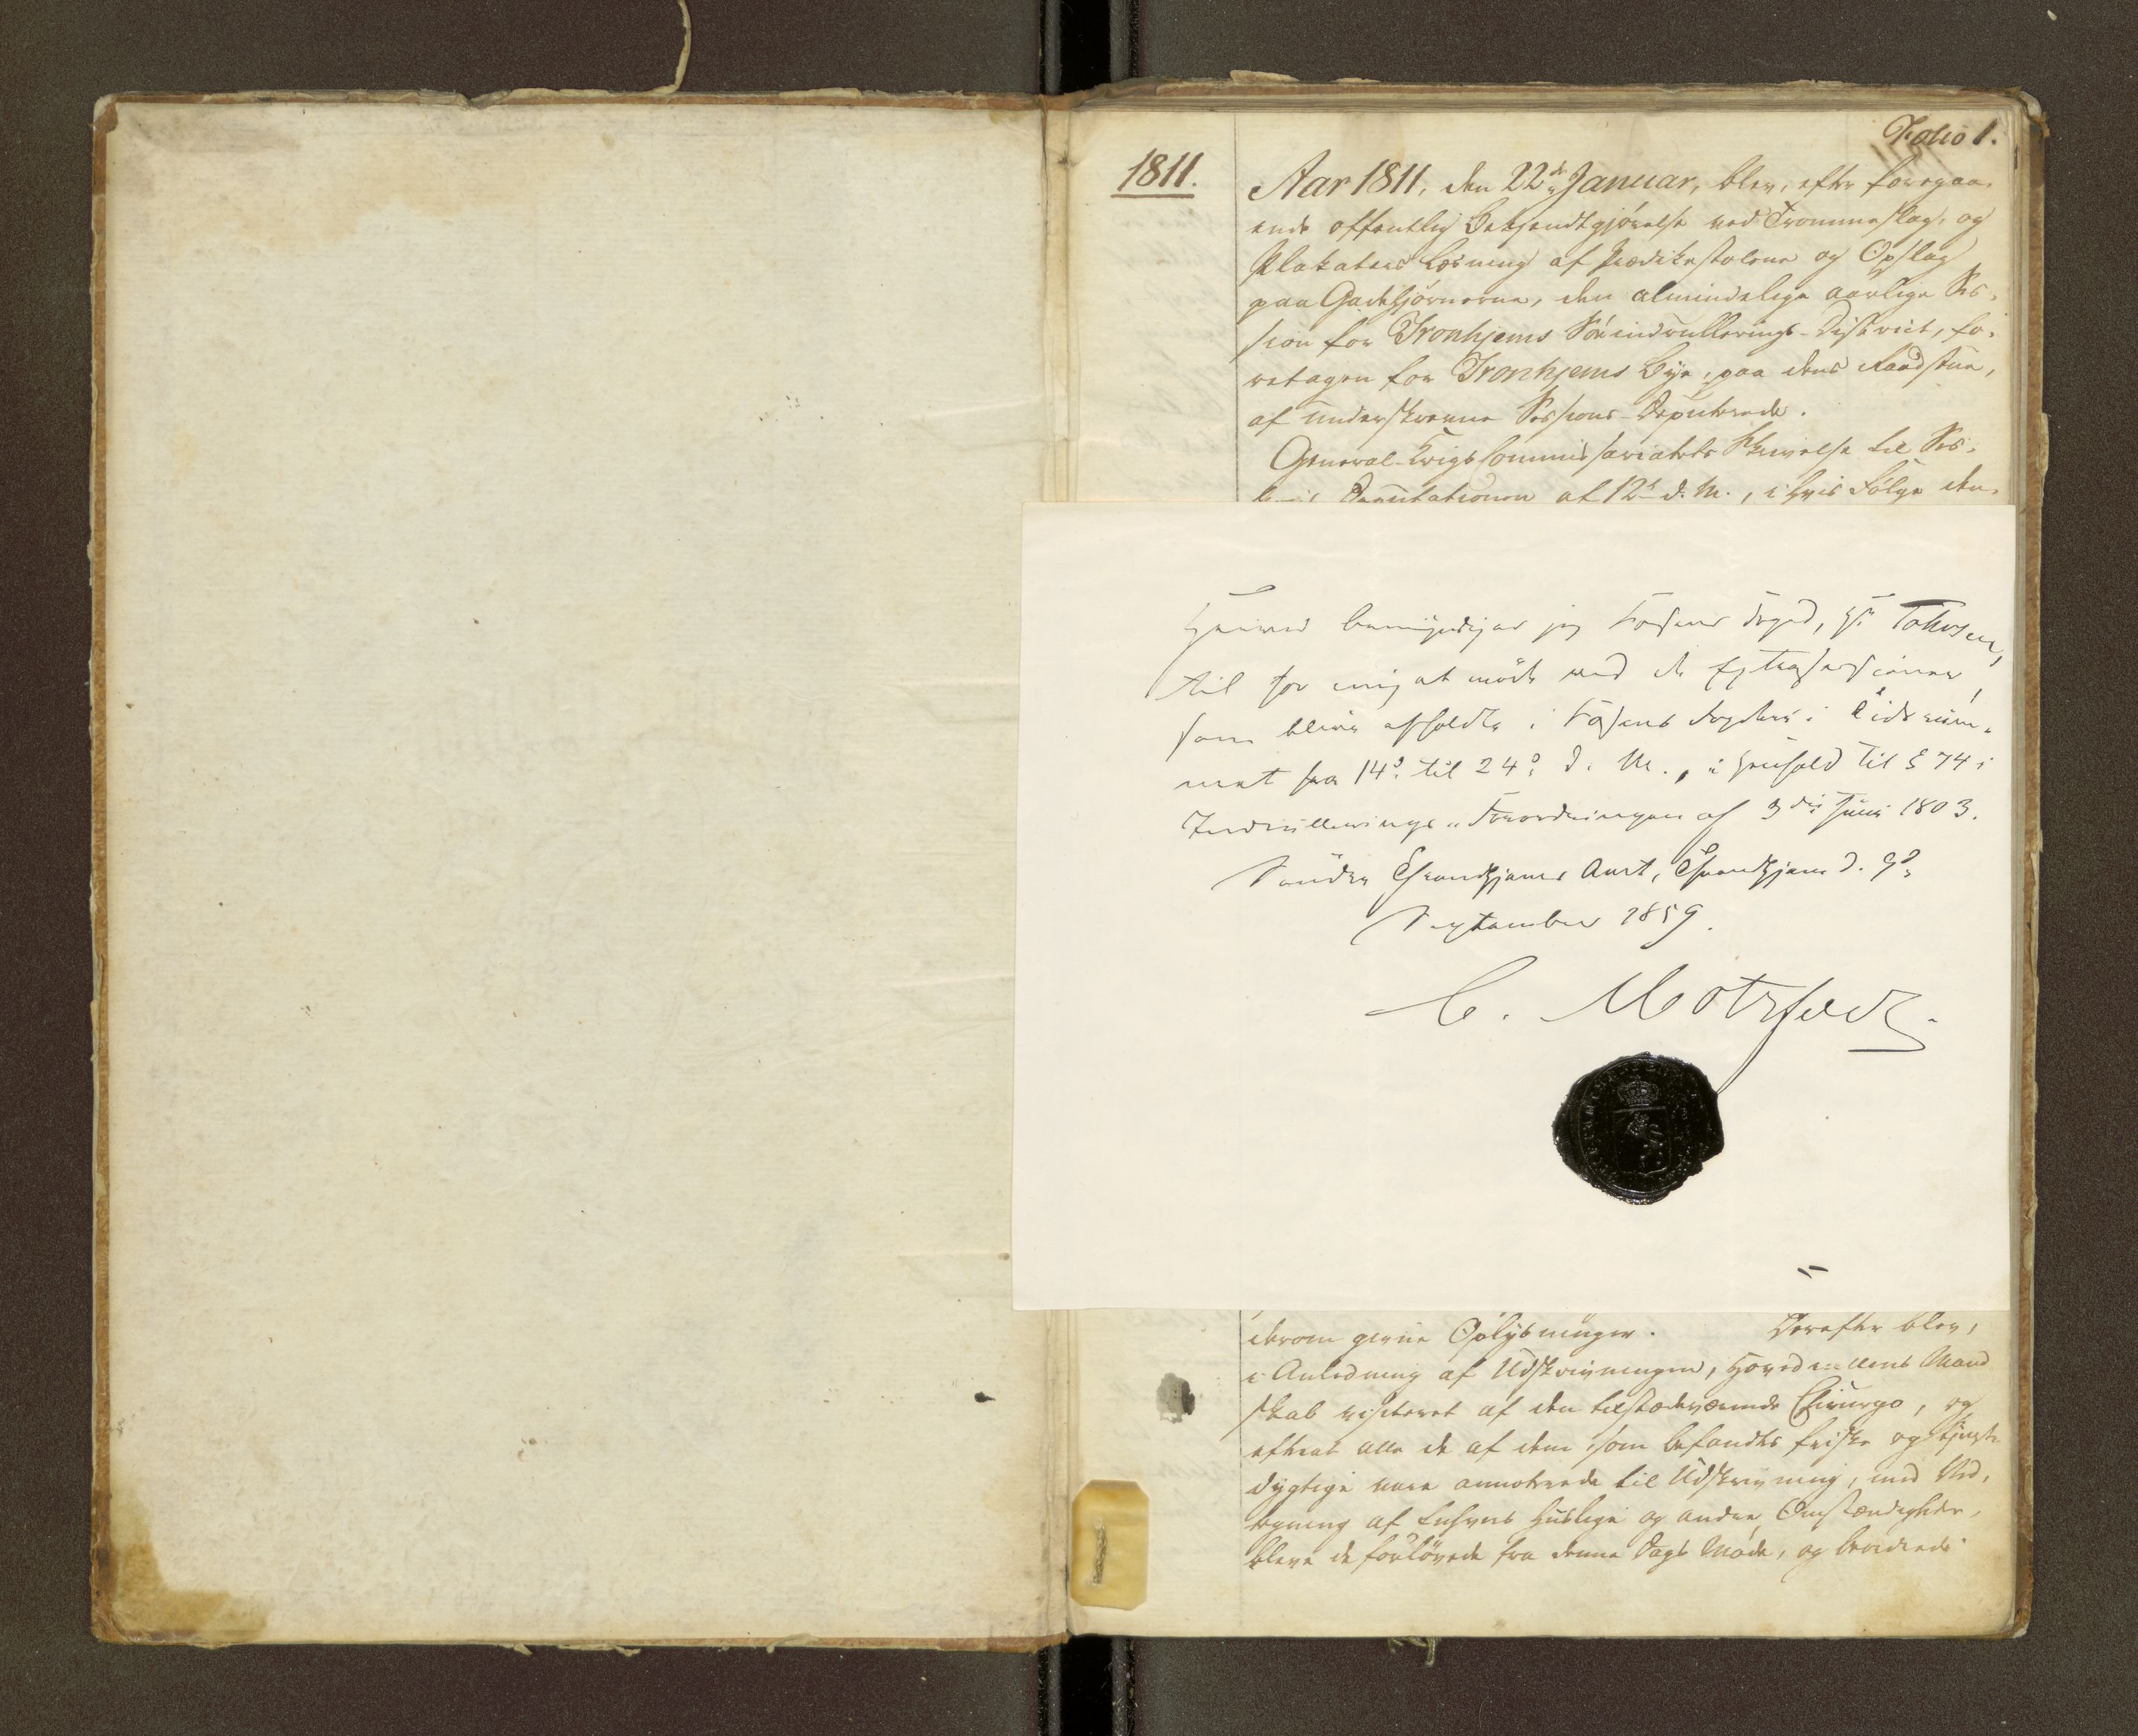 Folio 1.
1811.
Aar 1811, den 22de Januar, blev, efter foregaa-
ende offentlig Bekjendtgjørelse ved Trommeslag, og
Plakaters Læsning af Prædikestolene og Opslag
paa Gadehjørnerne, den almindelige aarlige Ses-
sion for Tronhjems Söeindrullerings-District, fo-
retagen for Tronhjems Bye, paa dens Raadstue,
af underskrevne Sessions-Deputerede.
General-Krigscommissariatets Skrivelse til Ses-
Deputationen af 12te d. M., i hvis Følge den
Herved bemyndiger jeg Fosens Foged, Hr
til for mig at möde ved de Extrasessioner,
som blive afholdte i Fosens Fogderi i Tidsrum-
met fra 14de til 24de d. M., i Henhold til § 74 i
Indrullerings-Forordningen af 3die Juni 1803.
Söndre Throndhjems Amt, Throndhjem d. 9de
September 1859.
C. Motzfeldt.
derom givne Oplysninger. Derefter blev,
i Anledning af Udskrivningen, Hovedrullens Mand
skab visiteret af den tilstedeværende Chirurgo, og
efterat alle de af dem, som befandtes friske og tjenst-
dygtige vare annoterede til Udskrivning, med
af Enhvers huslige og andre Omstændigheder,
bleve de forlövede fra denne Dags Möde, og beordrede